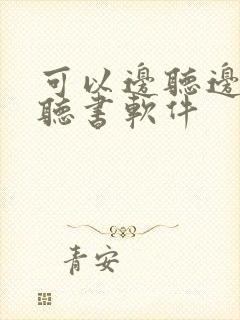 可以邊聽邊
聽書軟件
青安